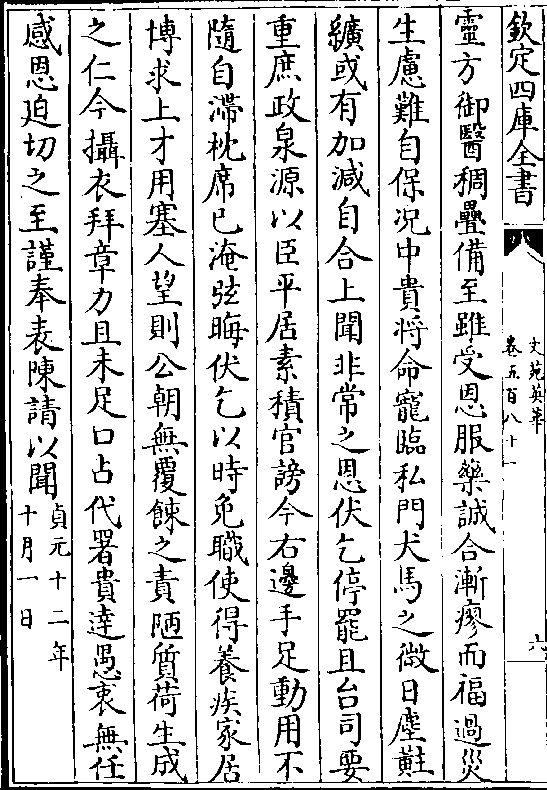 欽定四庫全書
文苑英華
卷五百八十一
六
靈方御醫稠疊備至雖受恩服藥誠合漸瘳而福過災
生慮難自保况中貴將命寵臨私門犬馬之微日塵黈
纊或有加減自合上聞非常之恩伏乞停罷且台司要
重庶政泉源以臣平居素積官謗今右邊手足動用不
隨自滯枕席已淹弦晦伏乞以時免職使得養疾家居
博求上才用塞人望則公朝無覆餗之責陋質荷生成
之仁今攝衣拜章力且未足口占代署貴達愚衷無任
感恩迫切之至謹奉表陳請以聞
貞元十二年
十月一日